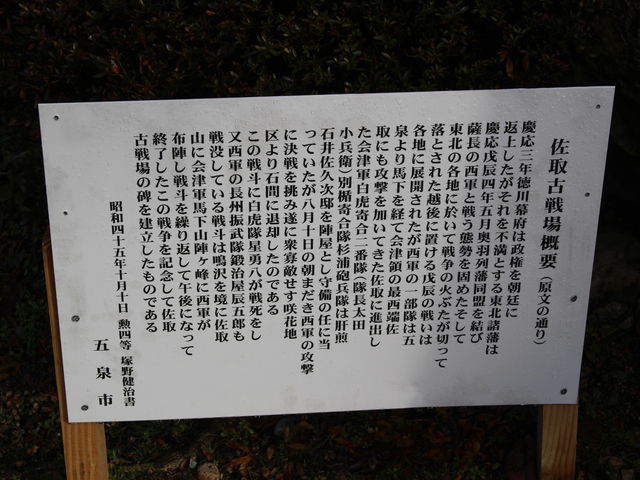 佐取古戦場概要（原文の通り）
慶応三年徳川幕府は政権を朝廷に
返上したがそれを不満とする東北諸藩は
慶応戊辰四年五月奥羽列藩同盟を結び
薩長の西軍と戦う態勢を固めたそして
東北の各地に於いて戦争の火ぶたが切って
落とされた越後に置ける戊辰の戦いは
各地に展開されたが西軍の一部隊は五
泉より馬下を経て会津領の最西端佐
取にも攻撃を加いてきた佐取に進出し
た会津軍白虎寄合二番隊（隊長太田
小兵衛）別楯寄合隊杉浦砲兵隊は肝煎
石井佐久次邸を陣屋とし守備の任に当
っていたが八月十日の朝まだき西軍の攻撃
に決戦を挑み遂に衆寡敵せす咲花地
区より石間に退却したのである
この戦斗に白虎隊星勇八が戦死をし
又西軍の長州振武隊鍛治屋辰五郎も
戦没している戦斗は鳴沢を境に佐取
山に会津軍馬下山陣ヶ峰に西軍が
布陣し戦斗を繰り返して午後になって
終了したこの戦争を記念して佐取
古戦場の碑を建立したものである
昭和四十五年十月十日 勲四等 塚野健治書
五泉市